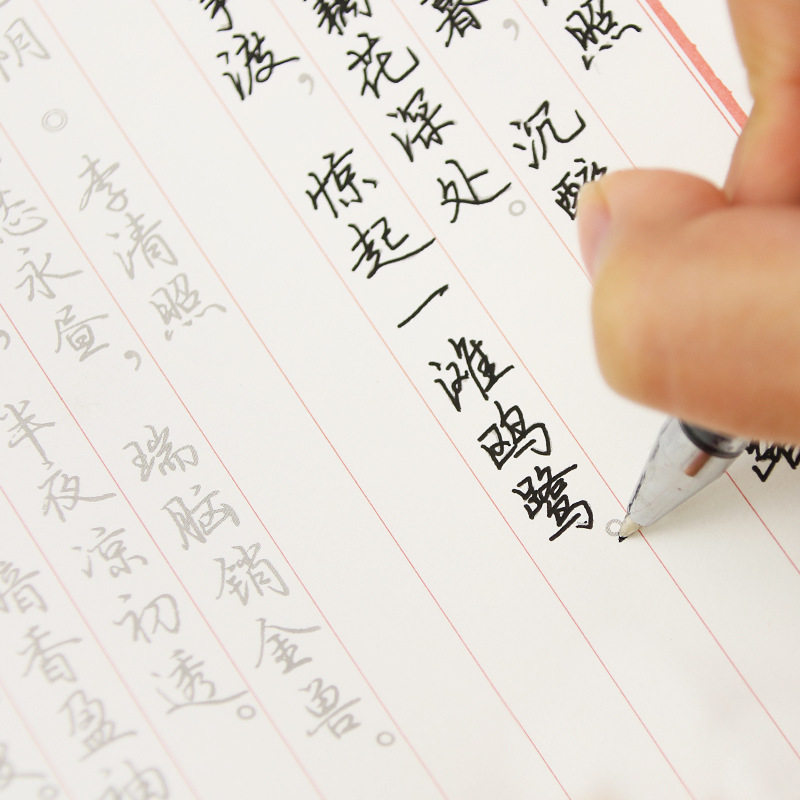 照
暮，沉醉
藕花深处。
争渡，惊起一滩鸥鹭。
阴。李清照
永昼，瑞脑销金兽。
，半夜凉初透。
暗香盈袖